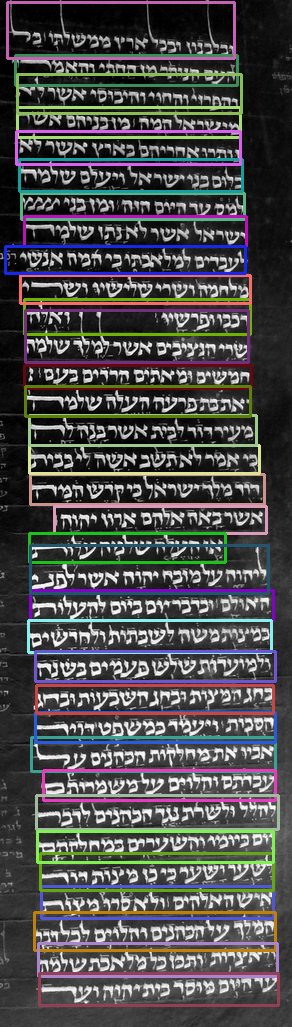 ובלבנון ובכל ארץ ממשלתו כל
העם הנותר מן החתי והאמרי
והפרזי והחוי והיבוסי אשר לא
מישראל המה מן בניהם אשר
נותרו אחריהם בארץ אשר לא
כלום בני ישראל ויעלם שלמה
למס עד היום הזה ומן בני
ישראל אשר לא נתן שלמה
לעבדים למלאכתו כי המה אנשי
מלחמה ושרי שלישיו ושרי
רכבו ופרשיו ואלה
שרי הנציבים אשר למלך שלמה
חמשים ומאתים הרדים בעם
ואת בת פרעה העלה שלמה
מעיר דויד לבית אשר בנה לה
כי אמר לא תשב אשה לי בבית
דויד מלך ישראל כי קדש המה
אשר באה אליהם ארון יהוה
אז העלה שלמה עלות
ליהוה על מזבח יהוה אשר לפני
האולם ובדבר יום ביום להעלות
כמצות משה לשבתות ולחדשים
ולמועדות שלש פעמים בשנה
בחג המצות ובחג השבעות ובחג
הסכות ויעמד כמשפט דויד
אביו את מחלקות הכהנים על
עבדתם והלוים על משמרותם
להלל ולשרת נגד הכהנים לדבר
יום ביומו והשערים במחלקותם
לשער ושער כי כן מצות דויד
איש האלהים ולא סרו מצות
המלך על הכהנים והלוים לכל דבר
ולאצרות ותכן כל מלאכת שלמה
עד היום מוסד בית יהוה ועד